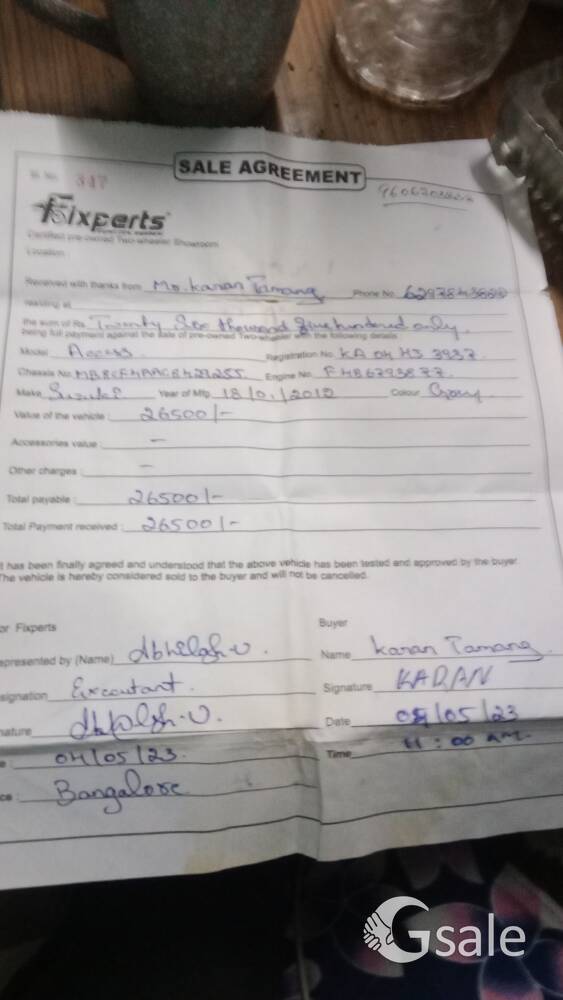 SALE AGREEMENT
347
Fixperts
Certified pre-owned Two-wheeler Showroom
Location
Received with thanks from Mr. Karan Tamang Phone No.
residing at
the sum of Rs. Twenty Six thousand five hundred only.
being full payment against the sale of pre-owned Two-wheeler with the following details
Model Access Registration No. KA 04 HS 3937
Chassis No. Engine No.
Make Suzuki Year of Mfg Colour Grey.
Value of the vehicle : 26500/-
Accessories value : —
Other charges : —
Total payable : 26500/-
Total Payment received : 26500/-
t has been finally agreed and understood that the above vehicle has been tested and approved by the buyer
The vehicle is hereby considered sold to the buyer and will not be cancelled.
or Fixperts Buyer
epresented by (Name) Name Karan Tamang
signation Excoutant. Signature KARAN
nature Date 04/05/23
e : 04/05/23. Time 11:00 am.
ce : Bangalore
Gsale